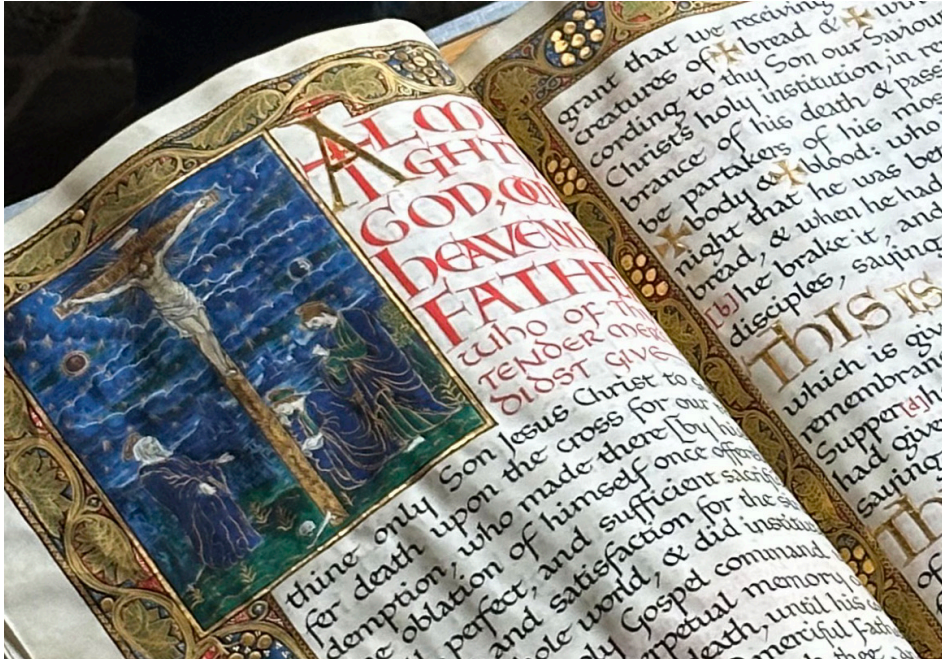 ALM
IGHT
GOD, OU
HEAVENL
FATHE
who of Th
TENDER MER
DIDST GIVE
thine only Son Jesus Christ to s
fer death upon the cross for our r
demption, who made there [by hi
ne oblation of himself once offere
perfect, and sufficient sacrifi
and satisfaction for the si
hole world, & did institu
oly Gospel command
erpetual memory
death, until his co
merciful Fathe
grant that we receiving
creatures of bread & win
cording to thy Son our Saviour
Christ's holy institution, in re
brance of his death & passi
be partakers of his mos
body & blood: who
night that he was bet
bread, & when he had
[b] he brake it, and
disciples, saying
THIS IS
which is giv
remembran
Supper [d] h
had give
saying
Th
of